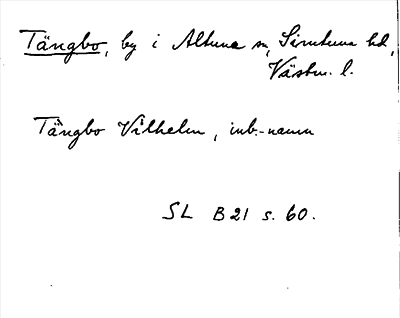 Tängbo, by i Altuna sn, Simtuna hd,
Västm. l.
Tängbo Vilhelm, inb.-namn
SL B21 s. 60.